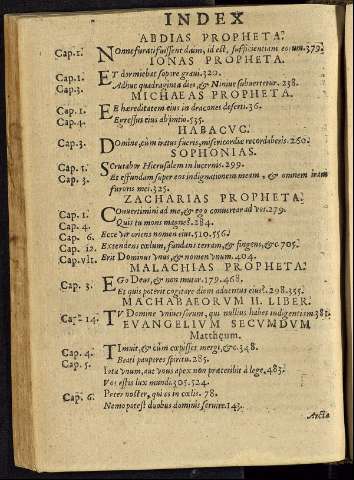 INDEX
ABDIAS PROPHETA.
Cap. 1. Nonne furati fuissent daum, id est, sufficientiam eorum. 379.
IONAS PROPHETA.
Cap. 1. ET dormiebat sopore graui. 320.
Cap. 3. Adhuc quadraginta dies, & Niniue subuertetur. 238.
MICHAEAS PROPHETA.
Cap. 1. Et hereditatem eius in dracones deserti. 36.
Cap. 4. Egressus eius ab initio. 535.
HABACVC.
Cap. 3. Domine, cùm iratus fueris, misericordiae recordaberis. 250.
SOPHONIAS.
Cap. 1. Scrutabor Hierusalem in lucernis. 299.
Cap. 3. Et effundam super eos indignationem meam, & omnem iram
furoris mei. 325.
ZACHARIAS PROPHETA.
Cap. 1. Conuertimini ad me, & ego conuertar ad vos. 279.
Cap. 4. Quis tu mons magne? 284.
Cap. 6. Ecce vir oriens nomen eius. 510. 556.
Cap. 12. Extendens coelum, fundans terram, & fingens, &c 705.
Cap. vlt. Erit Dominus vnus, & nomen vnum. 404.
MALACHIAS PROPHETA.
Cap. 3. EGo Deus, & non mutor. 179. 468.
Et quis poterit cogitare diem aduentus eius? 298. 355.
MACHABAEORVM II. LIBER.
Cap. 14. TV Domine vniuersorum, qui nullius habes indigentiam 381.
EVANGELIVM SECVMDVM
Mattheum.
Cap. 4. Timuit, & cùm coepisset mergi, &c. 348.
Cap. 5. Beati pauperes spiritu. 285.
Iota vnum, aut vnus apex non praeteribit à lege. 483.
Vos estis lux mundi. 305. 524.
Cap. 6. Pater noster, qui es in coelis. 78.
Nemo potest duobus dominis seruire. 143.
Arcta